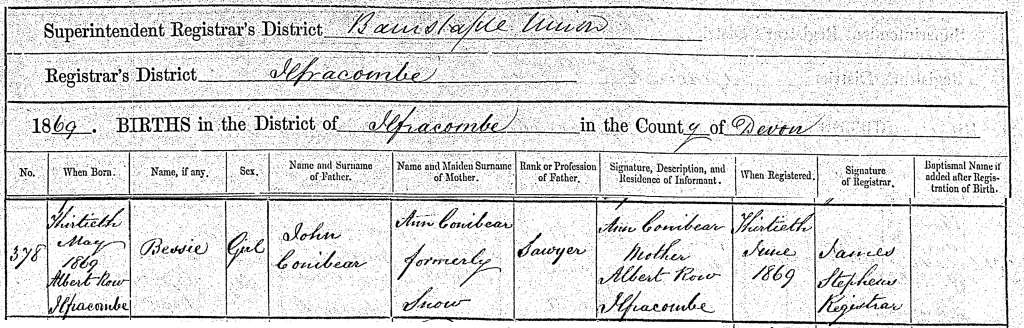 Superintendent Registrar's District Barnstaple Union
Registrar's District Ilfracombe
1869. BIRTHS in the District of Ilfracombe in the County of Devon
No. When Born. Name, if any. Sex. Name and Surname of Father. Name and Maiden Surname of Mother. Rank or Profession of Father. Signature, Description, and Residence of Informant. When Registered. Signature of Registrar. Baptismal Name if added after Registration of Birth.
378
Thirtieth
May
1869
Albert Row
Ilfracombe
Bessie
Girl
John
Conibear
Ann Conibear
formerly
Snow
Sawyer
Ann Conibear
Mother
Albert Row
Ilfracombe
Thirtieth
June
1869
James
Stephens
Registrar